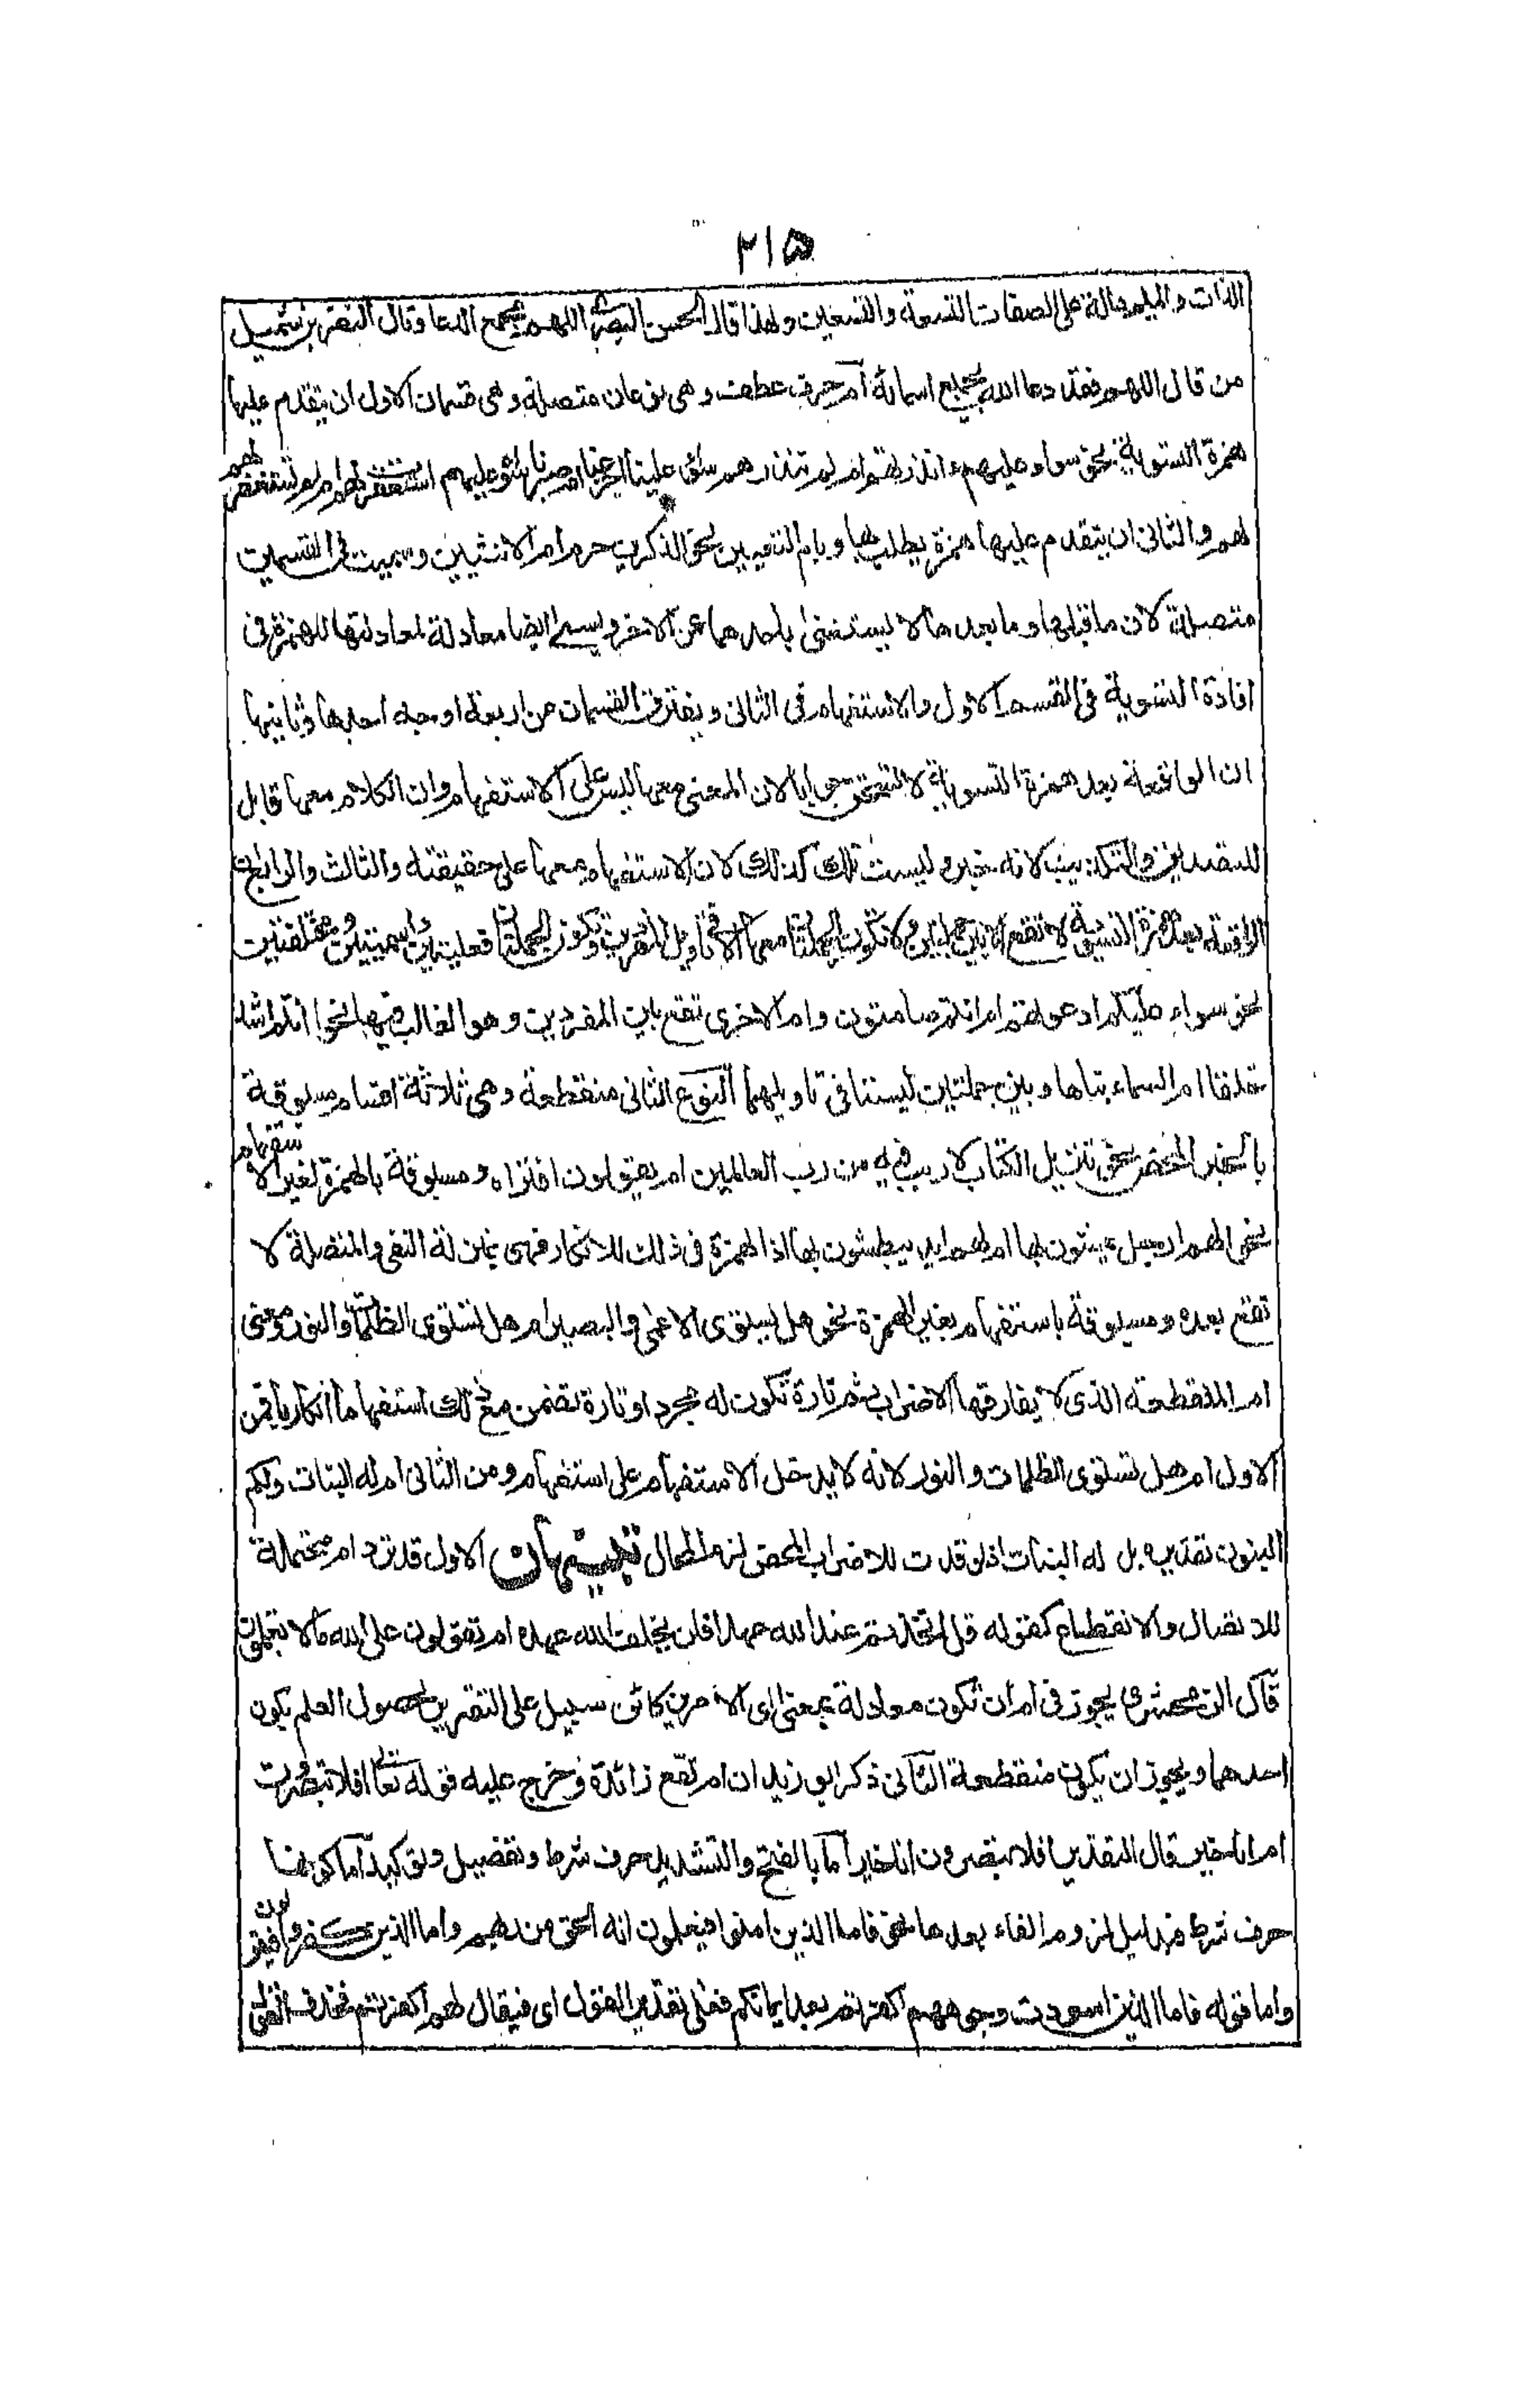 ٢١٥
الذات والميم دالة على الصفات التسعة والتسعين ولهذا قال الحسن البصرى اللهم مجمع الدعا وقال النضر بن شميل
من قال اللهم فقد دعا الله بجميع اسمائه أم حرف عطف وهى نوعان متصلة وهى قسمان الاول ان يتقدم عليها
همزة التسوية نحو سواء عليهم ءانذرتهم ام لم تنذرهم سواء علينا اجزعنا ام صبرنا سواء عليهم استغفرت لهم ام لم تستغفر
لهم والثانى ان يتقدم عليها همزة يطلب بها وبام التعيين نحو الذكرين حرم ام الانثيين وسميت فى القسمين
متصلة لان ما قبلها وما بعدها لا يستغنى باحدهما عن الاخر ويسمى ايضا معادلة لمعادلتها للهمزة فى
افادة التسوية فى القسم الاول والاستفهام فى الثانى ويفترق القسمان من اربعة اوجه احدها وثانيها
ان الواقعة بعد همزة التسوية لا تستحق جوابا لان المعنى معها ليس على الاستفهام وان الكلام معها قابل
للتصديق والتكذيب لانه خبر وليست تلك كذلك لان الاستفهام معها على حقيقته والثالث والرابع ان
الواقعة بعد همزة التسوية لا تقع الا بين جملتين ولا تكون الجملتان معها الا فى تاويل المفردين وتكون الجملتان فعليتين واسميتين ومختلفتين
نحو سواء عليكم ادعوتموهم ام انتم صامتون وام الاخرى تقع بين المفردين وهو الغالب فيها نحو اانتم اشد
خلقا ام السماء بناها وبين جملتين ليستا فى تاويلهما النوع الثانى منقطعة وهى ثلاثة اقسام مسبوقة
بالخبر المحض نحو تنزيل الكتاب لا ريب فيه من رب العالمين ام يقولون افتراه ومسبوقة بالهمزة لغير الاستفهام
نحو الهم ارجل يمشون بها ام لهم ايد يبطشون بها اذ الهمزة فى ذلك للانكار فهى بمنزلة النفى والمتصلة لا
تقع بعده ومسبوقة باستفهام بغير الهمزة نحو هل يستوى الاعمى والبصير ام هل تستوى الظلمات والنور ومعنى
ام المنقطعة الذى لا يفارقها الاضراب ثم تارة تكون له مجردا وتارة تضمن مع ذلك استفهاما انكاريا فمن
الاول ام هل تستوى الظلمات والنور لانه لا يدخل الاستفهام على استفهام ومن الثانى ام له البنات ولكم
البنون تقديره بل له البنات اذ لو قدرت للاضراب المحض لزم المحال تنبيهان الاول قد ترد ام محتملة
للاتصال والانقطاع كقوله قل اتخذتم عند الله عهدا فلن يخلف الله عهده ام تقولون على الله ما لا تعلمون
قال الزمخشرى يجوز فى ام ان تكون معادلة بمعنى اى الامرين كائن سبيل على التقرير لحصول العلم بكون
احدهما ويجوز ان يكون منقطعة الثانى ذكر ابو زيد ان ام تقع زائدة وخرج عليه قوله تعالى افلا تبصرون
ام انا خير قال التقدير افلا تبصرون انا خير أما بالفتح والتشديد حرف شرط وتفصيل وتوكيد اما كونها
حرف شرط فبدليل لزوم الفاء بعدها نحو فاما الذين امنوا فيعلمون انه الحق من ربهم واما الذين كفروا فيقولون
واما قوله فاما الذين اسودت وجوههم اكفرتم بعد ايمانكم فعلى تقدير القول اى فيقال لهم اكفرتم فحذف القول